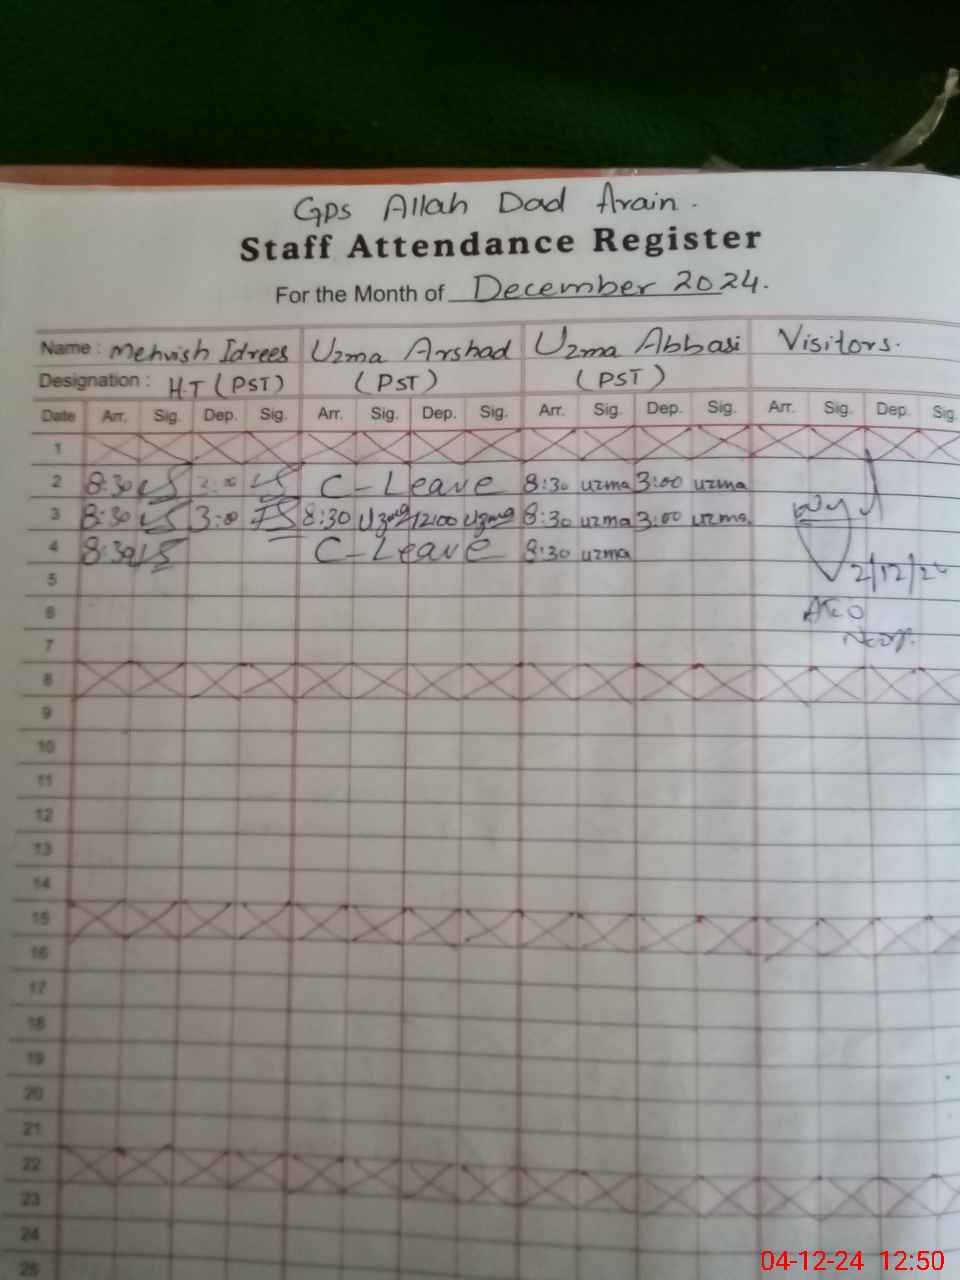 Gps Allah Dad Arain.
Staff Attendance Register
For the Month of December 2024.
Name : Mehvish Idrees Uzma Arshad Uzma Abbasi Visitors.
Designation : H.T (PST) (PST) (PST)
Date Arr. Sig. Dep. Sig. Arr. Sig. Dep. Sig. Arr. Sig. Dep. Sig. Arr. Sig. Dep. Sig.
1
2 8:30 C-Leave 8:30 uzma 3:00 uzma
3 8:30 3:00 8:30 Uzma 12:00 Uzma 8:30 uzma 3:00 uzma
4 8:30 C-Leave 8:30 uzma
5 2/12/24
6
7
8
9
10
11
12
13
14
15
16
17
18
19
20
21
22
23
24
25
04-12-24 12:50